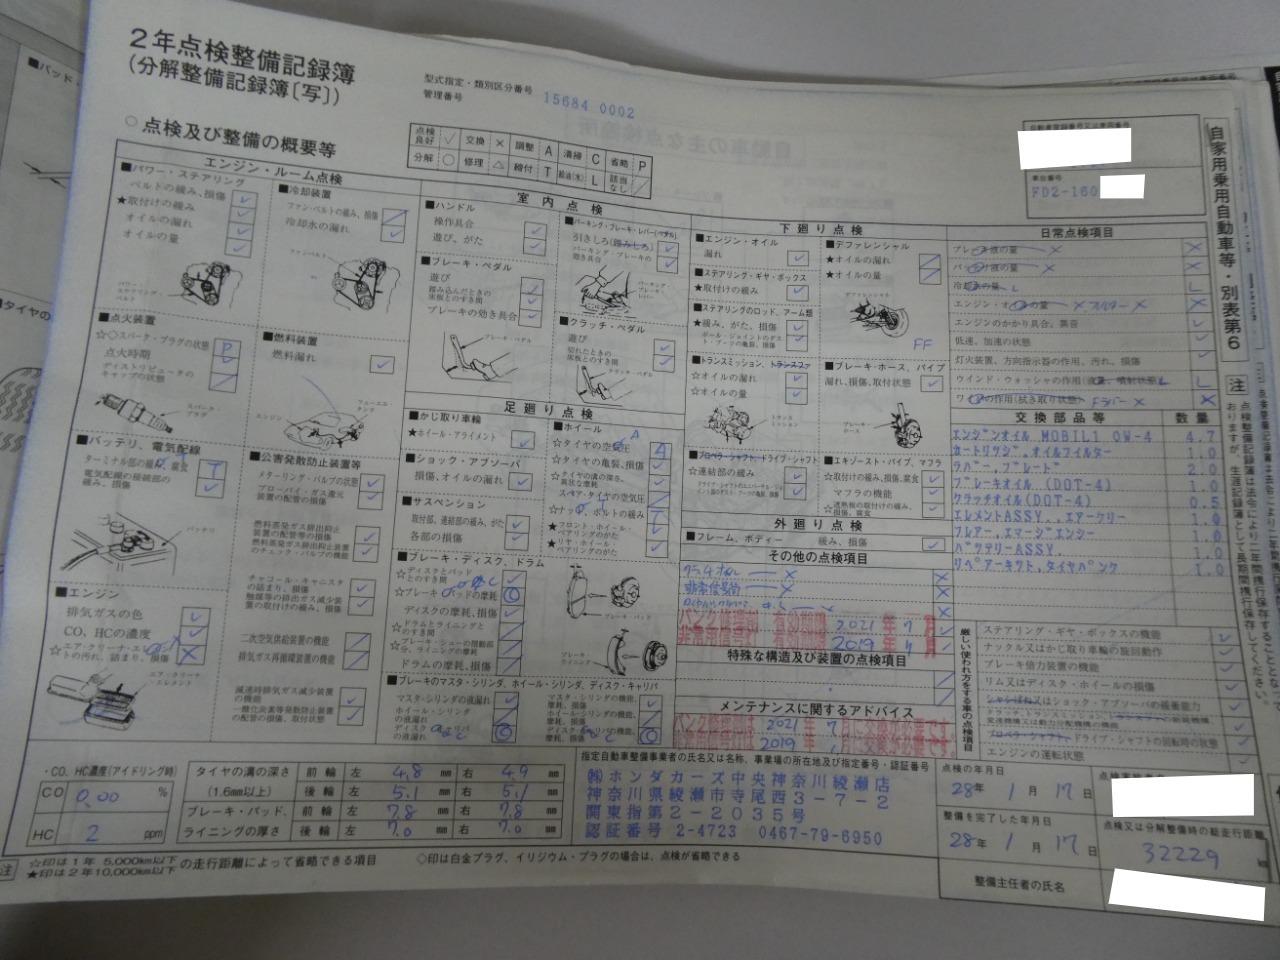 2年点検整備記録簿
(分解整備記録簿〔写〕)
型式指定・類別区分番号
管理番号
15684 0002
○点検及び整備の概要等
点検良好 ✓ 交換 × 調整 A 清掃 C 省略 P
分解 ○ 修理 △ 締付 T 給油(水) L 該当なし ／
車台番号
FD2-160
自家用乗用自動車等・別表第6
エンジン・ルーム点検
■パワー・ステアリング
ベルトの緩み、損傷
★取付けの緩み
オイルの漏れ
オイルの量
■冷却装置
ファン・ベルトの緩み、損傷
冷却水の漏れ
■点火装置
☆◇スパーク・プラグの状態 P
点火時期
ディストリビュータのキャップの状態
■燃料装置
燃料漏れ
■バッテリ、電気配線
ターミナル部の緩み、腐食 T
電気配線の接続部の緩み、損傷
■公害発散防止装置等
メターリング・バルブの状態
ブローバイ・ガス還元装置の配管の損傷
燃料蒸発ガス排出抑止装置の配管等の損傷
燃料蒸発ガス排出抑止装置のチェック・バルブの機能
チャコール・キャニスタの詰まり、損傷
触媒等の排出ガス減少装置の取付けの緩み、損傷
二次空気供給装置の機能
排気ガス再循環装置の機能
減速時排気ガス減少装置の機能
一酸化炭素等発散防止装置の配管の損傷、取付状態
■エンジン
排気ガスの色
CO、HCの濃度
室内点検
■ハンドル
操作具合
遊び、がた
■ブレーキ・ペダル
遊び
踏み込んだときの床板とのすき間
ブレーキの効き具合
■パーキング・ブレーキ・レバー(ペダル)
引きしろ(踏みしろ)
パーキング・ブレーキの効き具合
■クラッチ・ペダル
遊び
切れたときの床板とのすき間
足廻り点検
■かじ取り車輪
★ホイール・アライメント
■ショック・アブソーバ
損傷、オイルの漏れ
■サスペンション
取付部、連結部の緩み、がた
各部の損傷
■ホイール
☆タイヤの空気圧 A
☆タイヤの亀裂、損傷
☆タイヤの溝の深さ、異状な摩耗
スペア・タイヤの空気圧
☆ナット、ボルトの緩み T
★フロント・ホイール・ベアリングのがた
★リヤ・ホイール・ベアリングのがた
■ブレーキ・ディスク、ドラム
☆ディスクとパッドとのすき間
☆ブレーキ・パッドの摩耗
ディスクの摩耗、損傷
☆ドラムとライニングとのすき間
☆ブレーキ・シューの摺動部分、ライニングの摩耗
ドラムの摩耗、損傷
■ブレーキのマスタ・シリンダ、ホイール・シリンダ、ディスク・キャリパ
マスタ・シリンダの液漏れ
ホイール・シリンダの液漏れ
ディスク・キャリパの液漏れ
マスタ・シリンダの機能、摩耗、損傷
ホイール・シリンダの機能、摩耗、損傷
ディスク・キャリパの機能、摩耗、損傷
下廻り点検
■エンジン・オイル
漏れ
■ステアリング・ギヤ・ボックス
★取付けの緩み
■ステアリングのロッド、アーム類
★緩み、がた、損傷
ボール・ジョイントのダスト・ブーツの亀裂、損傷
■トランスミッション、トランスファ
☆オイルの漏れ
☆オイルの量
■プロペラ・シャフト、ドライブ・シャフト
☆連結部の緩み
■デファレンシャル
★オイルの漏れ
★オイルの量
FF
■ブレーキ・ホース、パイプ
漏れ、損傷、取付状態
■エキゾースト・パイプ、マフラ
☆取付けの緩み、損傷、腐食
マフラの機能
☆遮熱板の取付けの緩み、損傷、腐食
外廻り点検
■フレーム、ボディー 緩み、損傷
その他の点検項目
パンク修理剤 有効期限 2021年7月
非常信号灯 有効期限 2019年7月
特殊な構造及び装置の点検項目
メンテナンスに関するアドバイス
日常点検項目
ブレーキ液の量 ×
バッテリ液の量 ×
冷却水の量 L
エンジン・オイルの量 × フィルター ×
エンジンのかかり具合、異音
低速、加速の状態
灯火装置、方向指示器の作用、汚れ、損傷
交換部品等 数量
エンジンオイル MOBIL1 0W-4 4.7
カートリッジ,オイルフィルター 1.0
ラバー,ブレード 2.0
ブレーキオイル (DOT-4) 1.0
クラッチオイル(DOT-4) 0.5
エレメントASSY.,エアークリー 1.0
フレアー,エマージエンシー 1.0
バッテリーASSY. 1.0
リペアーキット,タイヤパンク 1.0
厳しい使われ方をする車の点検項目
ステアリング・ギヤ・ボックスの機能
ナックル又はかじ取り車輪の旋回動作
ブレーキ倍力装置の機能
リム又はディスク・ホイールの損傷
エンジンの運転状態
・CO、HC濃度(アイドリング時)
CO 0.00 %
HC 2 ppm
タイヤの溝の深さ (1.6mm以上) 前輪 左 4.8 mm 右 4.9 mm
後輪 左 5.1 mm 右 5.1 mm
ブレーキ・パッド、ライニングの厚さ 前輪 左 7.8 mm 右 7.8 mm
後輪 左 7.0 mm 右 7.0 mm
指定自動車整備事業者の氏名又は名称、事業場の所在地及び指定番号・認証番号
㈱ホンダカーズ中央神奈川綾瀬店
神奈川県綾瀬市寺尾西3-7-2
関東指第2-2035号
認証番号 2-4723 0467-79-6950
点検の年月日
28年 1月 17日
整備を完了した年月日
28年 1月 17日
点検又は分解整備時の総走行距離
32229 km
整備主任者の氏名
☆印は1年 5,000km以下
★印は2年10,000km以下 の走行距離によって省略できる項目
◇印は白金プラグ、イリジウム・プラグの場合は、点検が省略できる